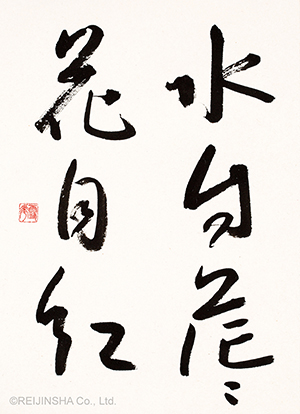 水自茫々
花自紅
©REIJINSHA Co., Ltd.